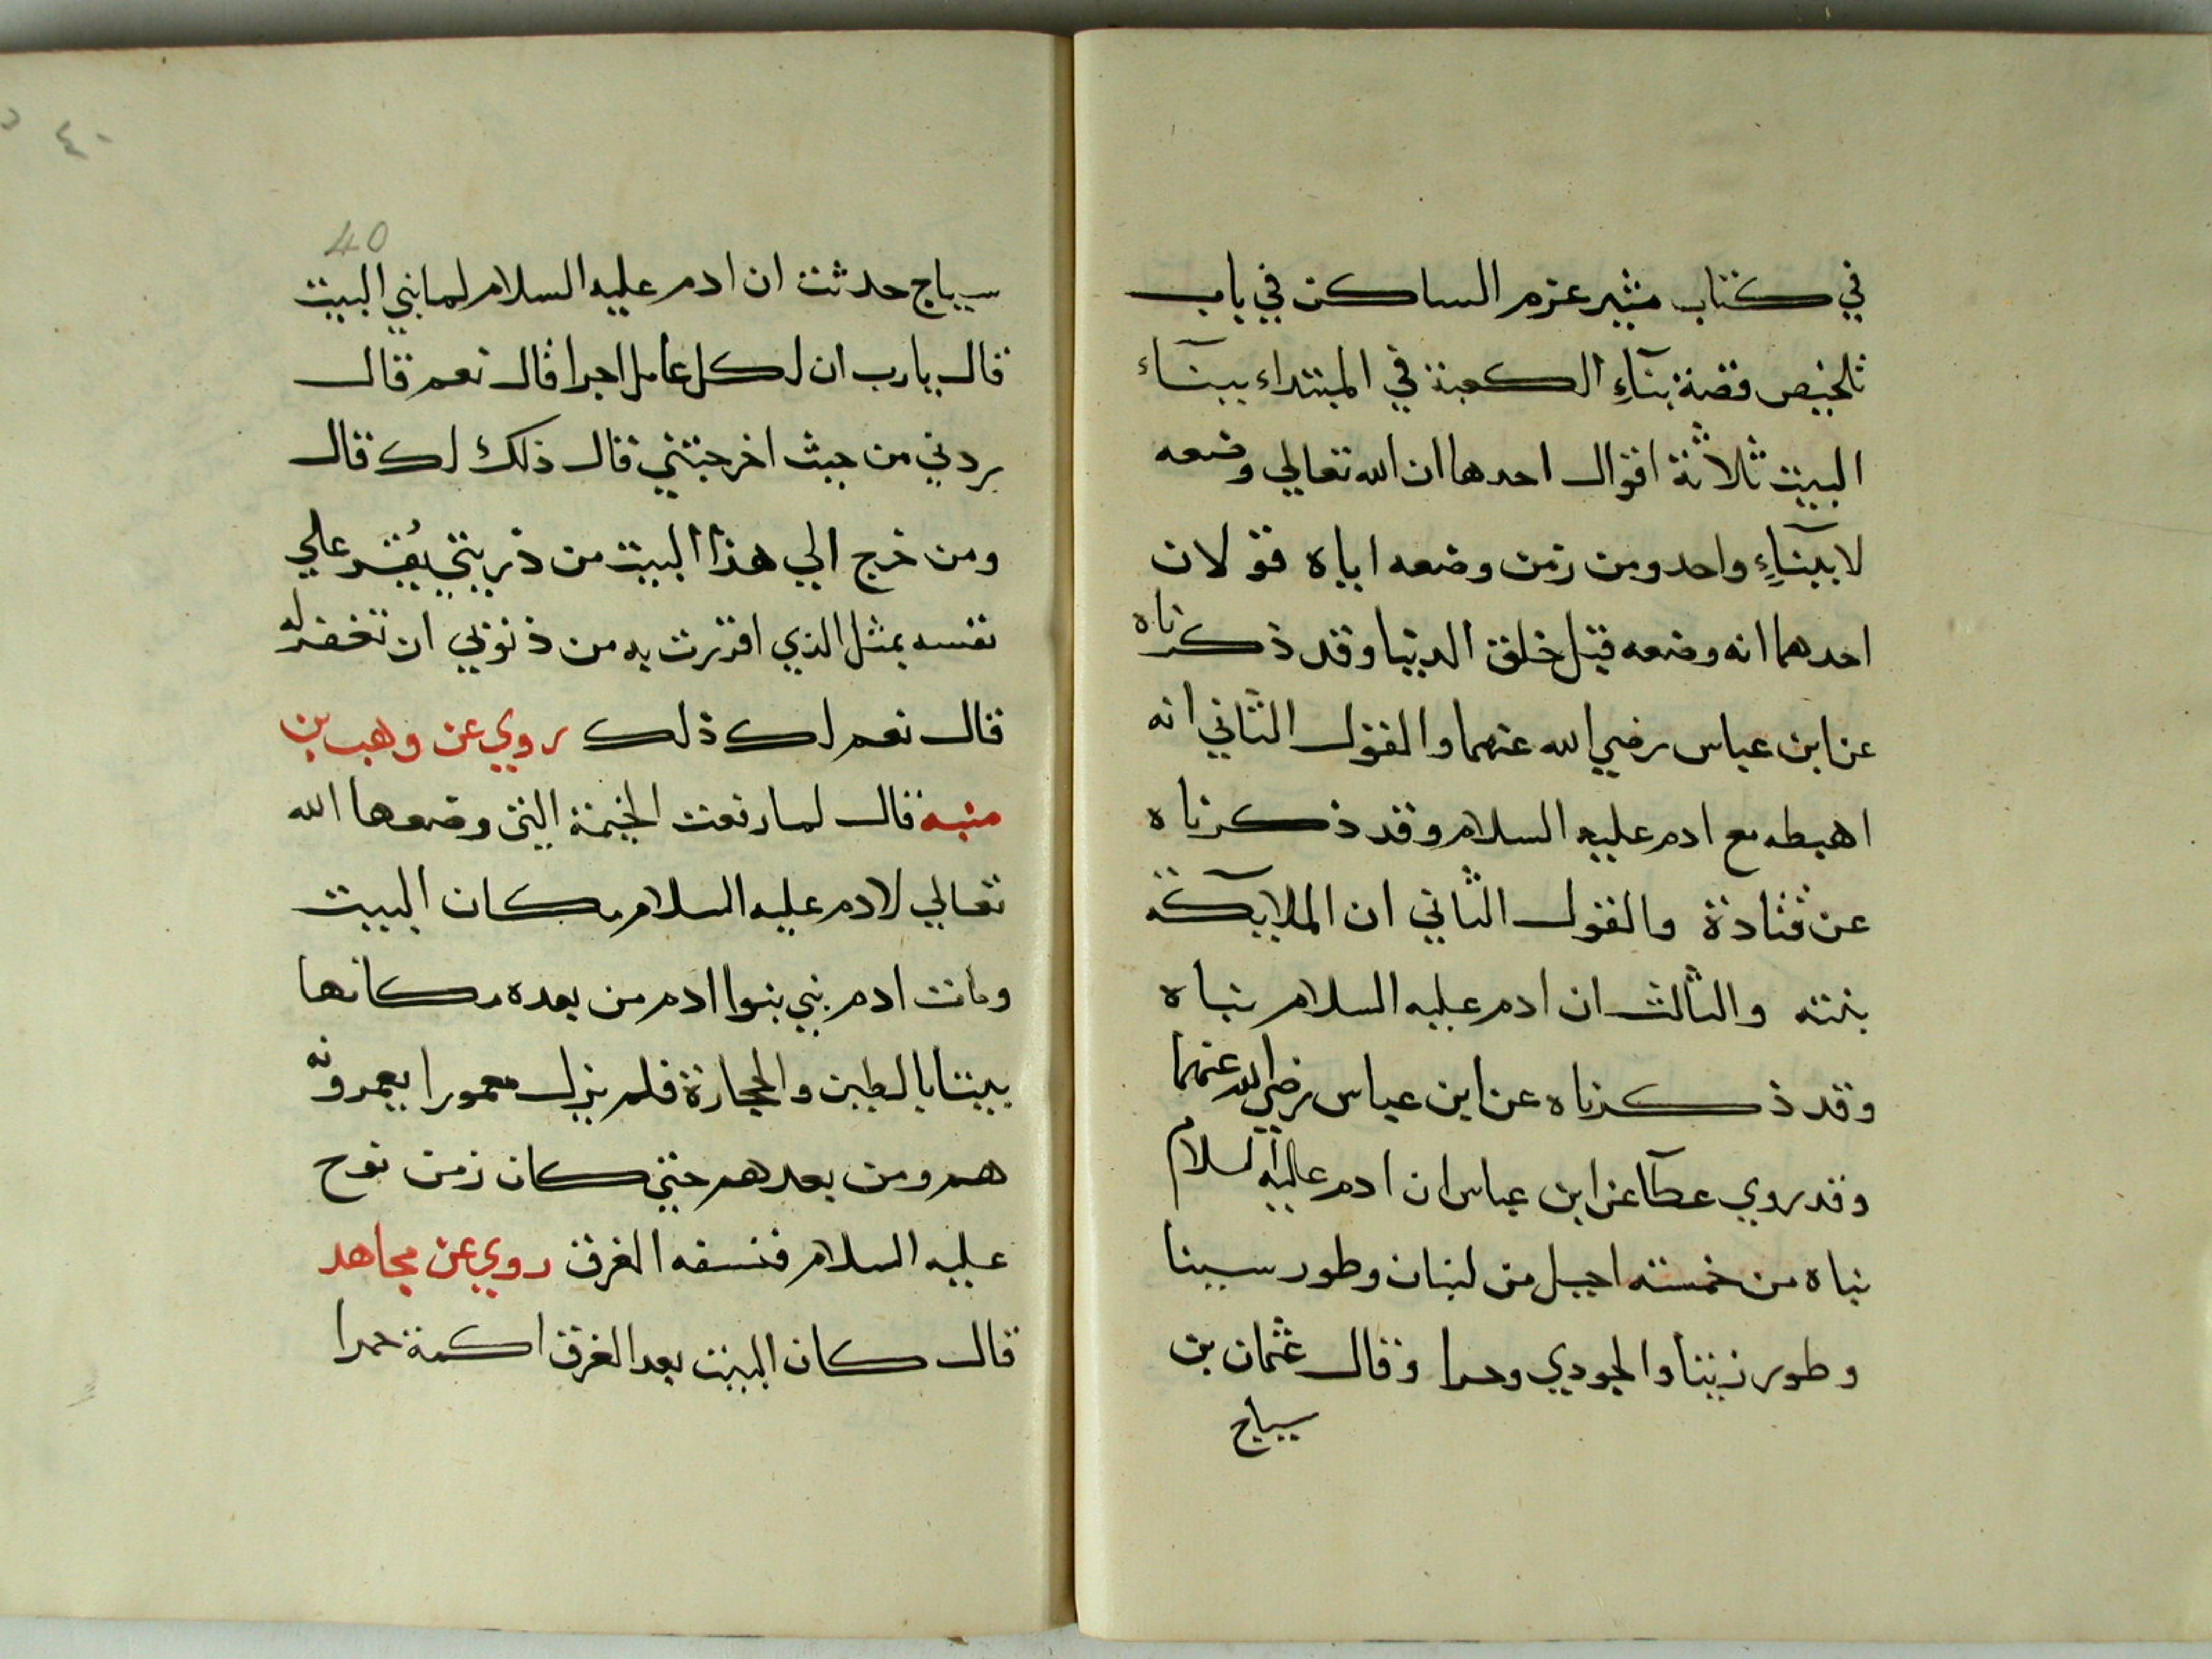 في كتاب مثير عزم الساكن في باب
تلخيص قصة بنآءِ الكعبة في المبتداء ببنآء
البيت ثلاثة اقوال احدها ان الله تعالي وضعه
لا ببنآءِ واحد ومن زمن وضعه اياه قولان
احدهما انه وضعه قبل خلق الدنيا وقد ذكرناه
عن ابن عباس رضي الله عنهما والقول الثاني انه
اهبطه مع ادم عليه السلام وقد ذكرناه
عن قتادة والقول الثاني ان الملايكة
بنته والثالث ان ادم عليه السلام بناه
وقد ذكرناه عن ابن عباس رضي الله عنهما
وقد روي عطآ عن ابن عباس ان ادم عليه السلام
بناه من خمسته اجبل من لبنان وطور سينا
وطور زيتنا والجودي وحرا وقال عثمان بن
سياج
٤٠
40
سياج حدثت ان ادم عليه السلام لما بني البيت
قال يارب ان لكل عامل اجرا قال نعم قال
ردني من حيث اخرجتني قال ذلك لك قال
ومن خرج الي هذا البيت من ذريتي يُقر علي
نفسه بمثل الذي اقررت به من ذنوبي ان تغفر له
قال نعم لك ذلك روي عن وهب بن
منبه قال لما رفعت الخيمة التي وضعها الله
تعالي لادم عليه السلام مكان البيت
ومات ادم بني بنوا ادم من بعده مكانها
بيتا بالطين والحجارة فلم يزل معمورا يعمرونه
هم ومن بعدهم حتي كان زمن نوح
عليه السلام فنسفه الغرق روي عن مجاهد
قال كان البيت بعد الغرق اكمة حمرا